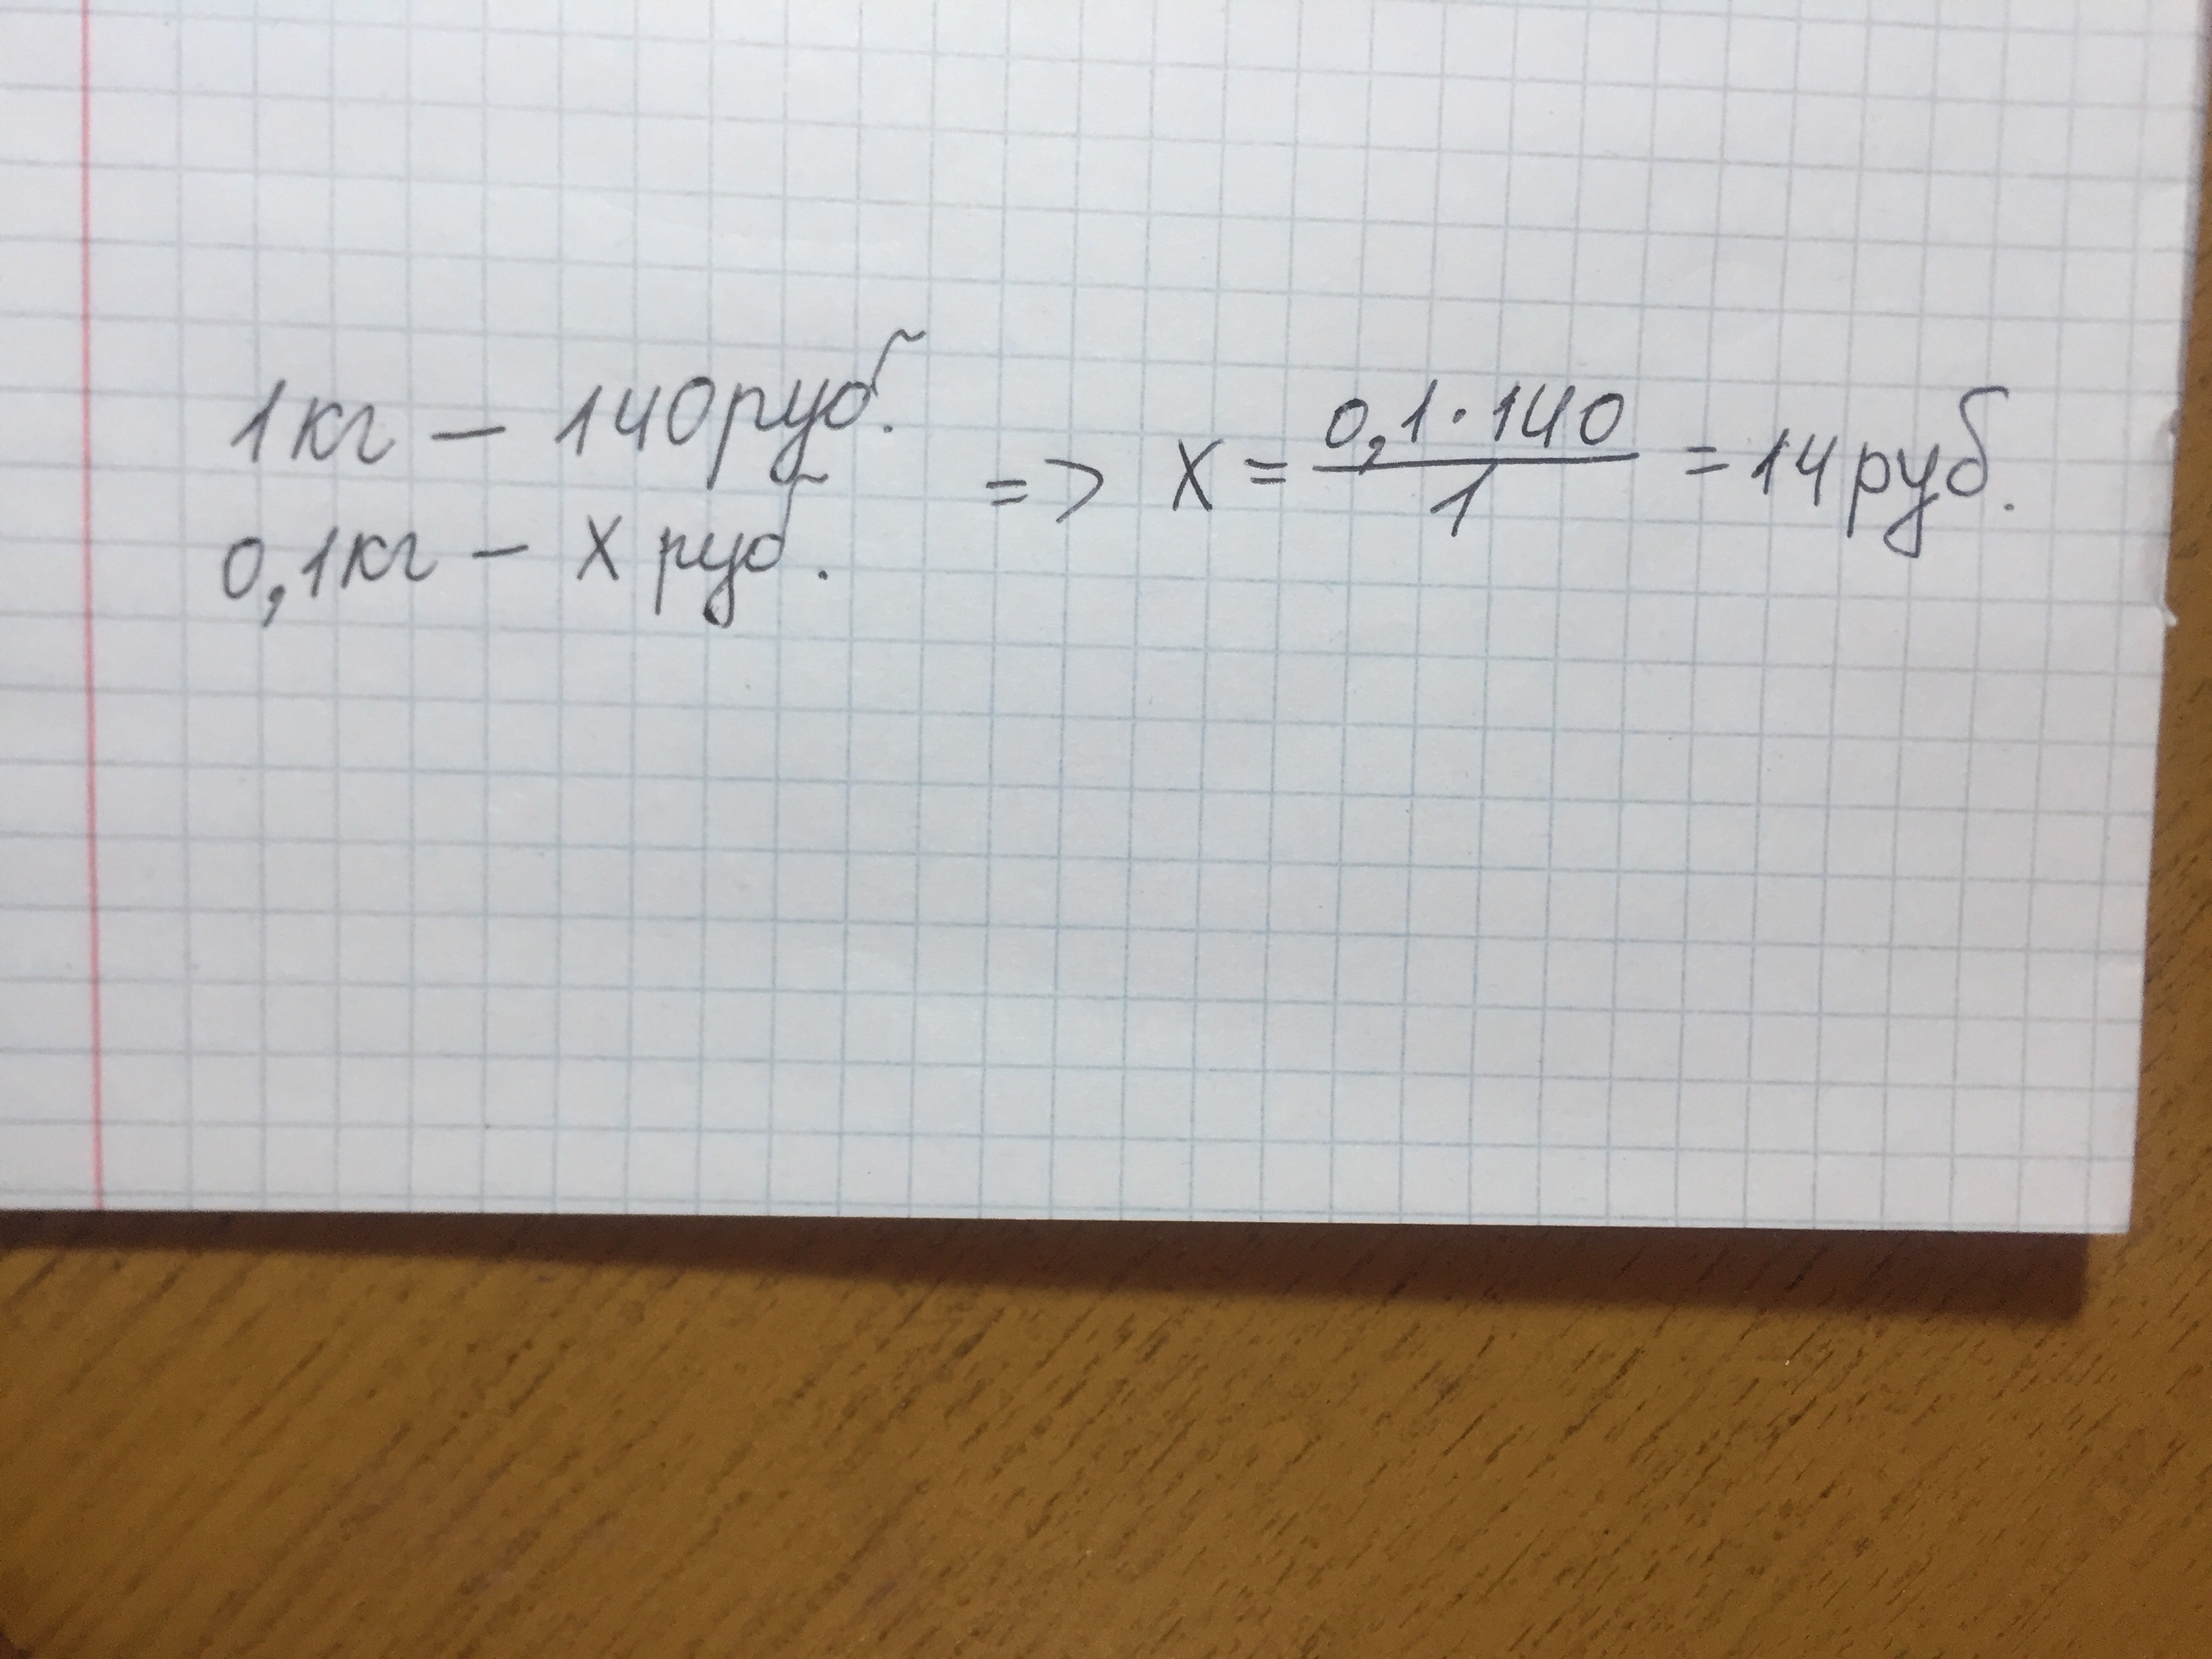 1кг – 140руб.
0,1кг – X руб.
=> X = 0,1·140 / 1 = 14руб.